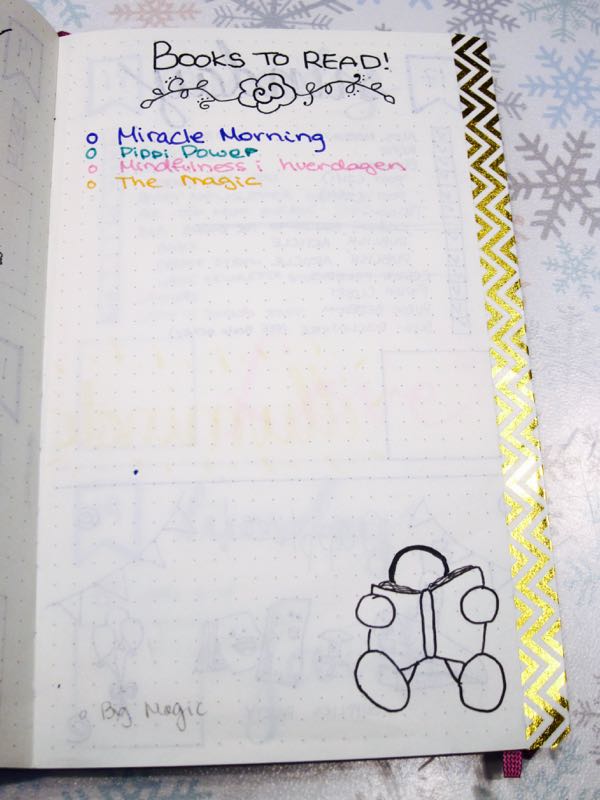 BOOKS TO READ!
Miracle Morning
Pippi Power
Mindfulness i hverdagen
The Magic
Big Magic